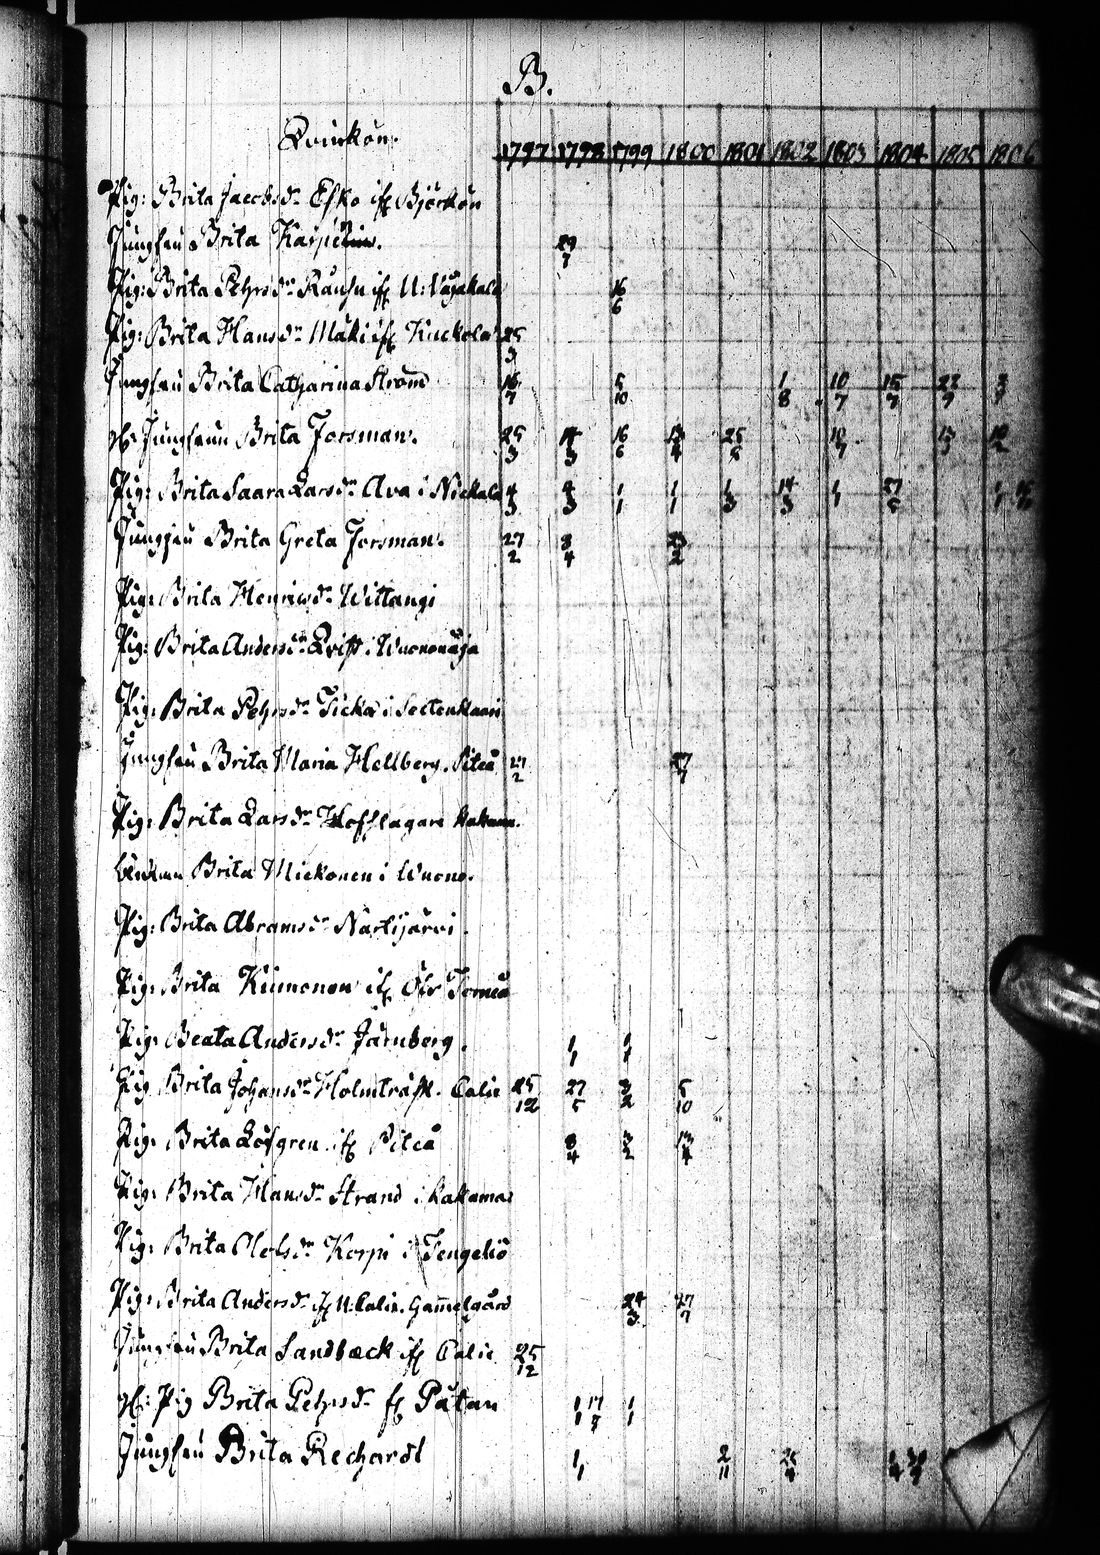 B.
Qvinkön. 1797 1798 1799 1800 1801 1802 1803 1804 1805 1806
Pig: Brita Jacobsdr Esko ifr Björkön
Jungfru Brita Karpelin. 29/7
Pig: Brita Pehrsdr Rauhu ifr N: Vojakala 16/6
Pig: Brita Hansdr Mäki ifr Kuckola 25/3
Jungfru Brita Catharina Ström 16/7 5/10 1/8 10/7 15/7 22/9
H: Jungfrun Brita Forsman. 25/3 14/3 16/6 13/4 25/5 10/7 13/3 12/2
Pig: Brita Saara Larsdr Ava i Nickala 4/3 4/3 1/1 1/1 1/3 14/3 1/1
Jungfru Brita Greta Forsman. 27/2 8/4 23/2
Pig: Brita Henricsdr Wittangi
Pig: Brita Andersdr Qvist i Wuonooja
Pig: Brita Pehrsdr Ticka i Seetenkaari
Jungfru Brita Maria Hellberg. Piteå 27/2 27/7
Pig: Brita Larsdr Hofslagare Kakama.
Brita Miekonen i Wuono.
Pig: Brita Abramsdr Nartijärvi.
Pig: Brita Kinnonen ifr Öfr Torneå
Pig: Beata Andersdr Järnberg. 1/1
Pig. Brita Johansdr Holmträsk. Calix 25/12 27/5 3/2 5/10
Pig: Brita Löfgren ifr Piteå 8/4 3/2 13/4
Pig: Brita Hansdr Strand i Kakama
Pig: Brita Olofsdr Korpi i Tengeliö
Pig: Brita Andersdr ifr N: Calix. Gammelgård 24/3 27/7
Jungfru Brita Sandbæck ifr Calix 25/12
H: Pig Brita Pehrsdr fr Påtan 1/1 17/8 1/1
Jungfru Brita Rechardt 1/1 2/11